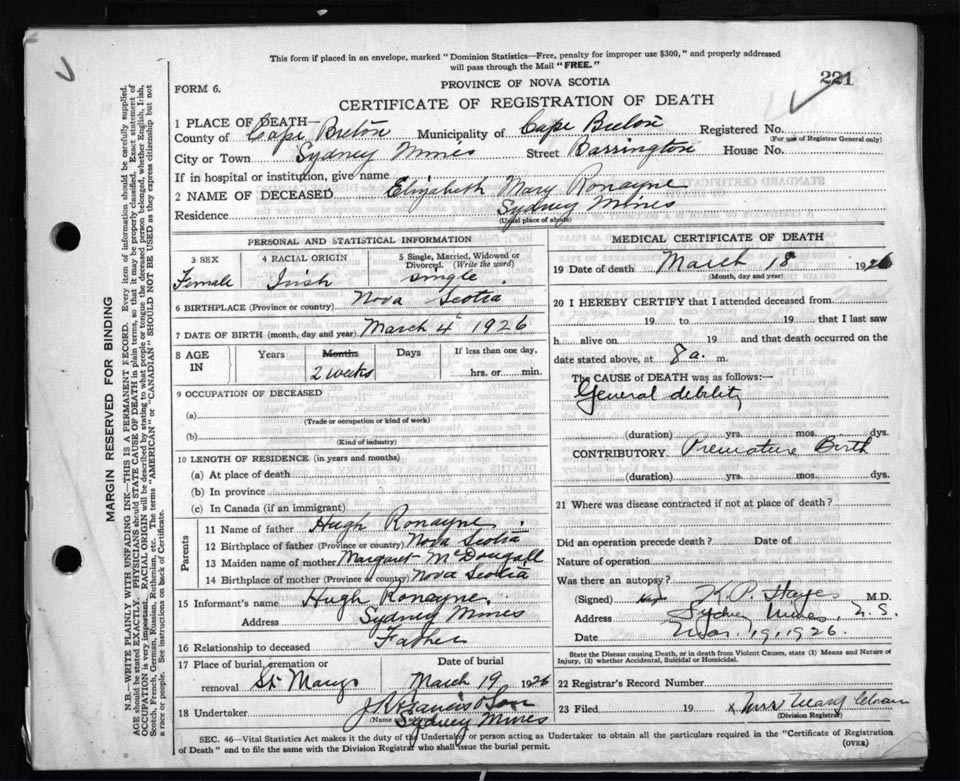 This form if placed in an envelope, marked "Dominion Statistics—Free, penalty for improper use $300," and properly addressed
will pass through the Mail "FREE."
221
FORM 6.
PROVINCE OF NOVA SCOTIA
CERTIFICATE OF REGISTRATION OF DEATH
1 PLACE OF DEATH—
County of Cape Breton Municipality of Cape Breton Registered No.
(For use of Registrar General only)
City or Town Sydney Mines Street Barrington House No.
If in hospital or institution, give name
2 NAME OF DECEASED Elizabeth Mary Ronayne
Residence Sydney Mines
(Usual place of abode)
PERSONAL AND STATISTICAL INFORMATION
3 SEX 4 RACIAL ORIGIN 5 Single, Married, Widowed or Divorced. (Write the word)
Female Irish single
6 BIRTHPLACE (Province or country) Nova Scotia
7 DATE OF BIRTH (month, day and year) March 4 1926
8 AGE IN Years Months Days If less than one day,
2 weeks hrs. or min.
9 OCCUPATION OF DECEASED
(a)
(Trade or occupation or kind of work)
(b)
(Kind of industry)
10 LENGTH OF RESIDENCE (in years and months)
(a) At place of death
(b) In province
(c) In Canada (if an immigrant)
Parents
11 Name of father Hugh Ronayne
12 Birthplace of father (Province or country) Nova Scotia
13 Maiden name of mother Margaret McDougall
14 Birthplace of mother (Province or country) Nova Scotia
15 Informant's name Hugh Ronayne
Address Sydney Mines
16 Relationship to deceased Father
17 Place of burial, cremation or Date of burial
removal St Marys March 19 1926
18 Undertaker J R Francis & Son
(Name and
Sydney Mines
MEDICAL CERTIFICATE OF DEATH
19 Date of death March 18 1926
(Month, day and year)
20 I HEREBY CERTIFY that I attended deceased from
19 to 19 that I last saw
h alive on 19 and that death occurred on the
date stated above, at 8 a. m.
The CAUSE of DEATH was as follows:—
General debility
(duration) yrs. mos. dys.
CONTRIBUTORY. Premature Birth
(duration) yrs. mos. dys.
21 Where was disease contracted if not at place of death?
Did an operation precede death? Date of
Nature of operation
Was there an autopsy?
(Signed) K. P. Hayes M.D.
Address Sydney Mines, N.S.
Date Mar. 19, 1926.
State the Disease causing Death, or in death from Violent Causes, state (1) Means and Nature of
Injury, (2) whether Accidental, Suicidal or Homicidal.
22 Registrar's Record Number
23 Filed 19 x Mrs Mary
(Division Registrar)
SEC. 46—Vital Statistics Act makes it the duty of the Undertaker or person acting as Undertaker to obtain all the particulars required in the "Certificate of Registration
of Death" and to file the same with the Division Registrar who shall issue the burial permit. (OVER)
MARGIN RESERVED FOR BINDING
N.B.—WRITE PLAINLY WITH UNFADING INK—THIS IS A PERMANENT RECORD. Every item of information should be carefully supplied.
AGE should be stated EXACTLY. PHYSICIANS should STATE CAUSE OF DEATH in plain terms, so that it may be properly classified. Exact statement of
OCCUPATION is very important. RACIAL ORIGIN will be described by stating to what people or tongue the deceased person belonged, whether English, Irish,
Scotch, French, German, Russian, Ruthenian, etc. The terms "AMERICAN" or "CANADIAN" SHOULD NOT BE USED as they express citizenship but not
a race or people. See instructions on back of Certificate.